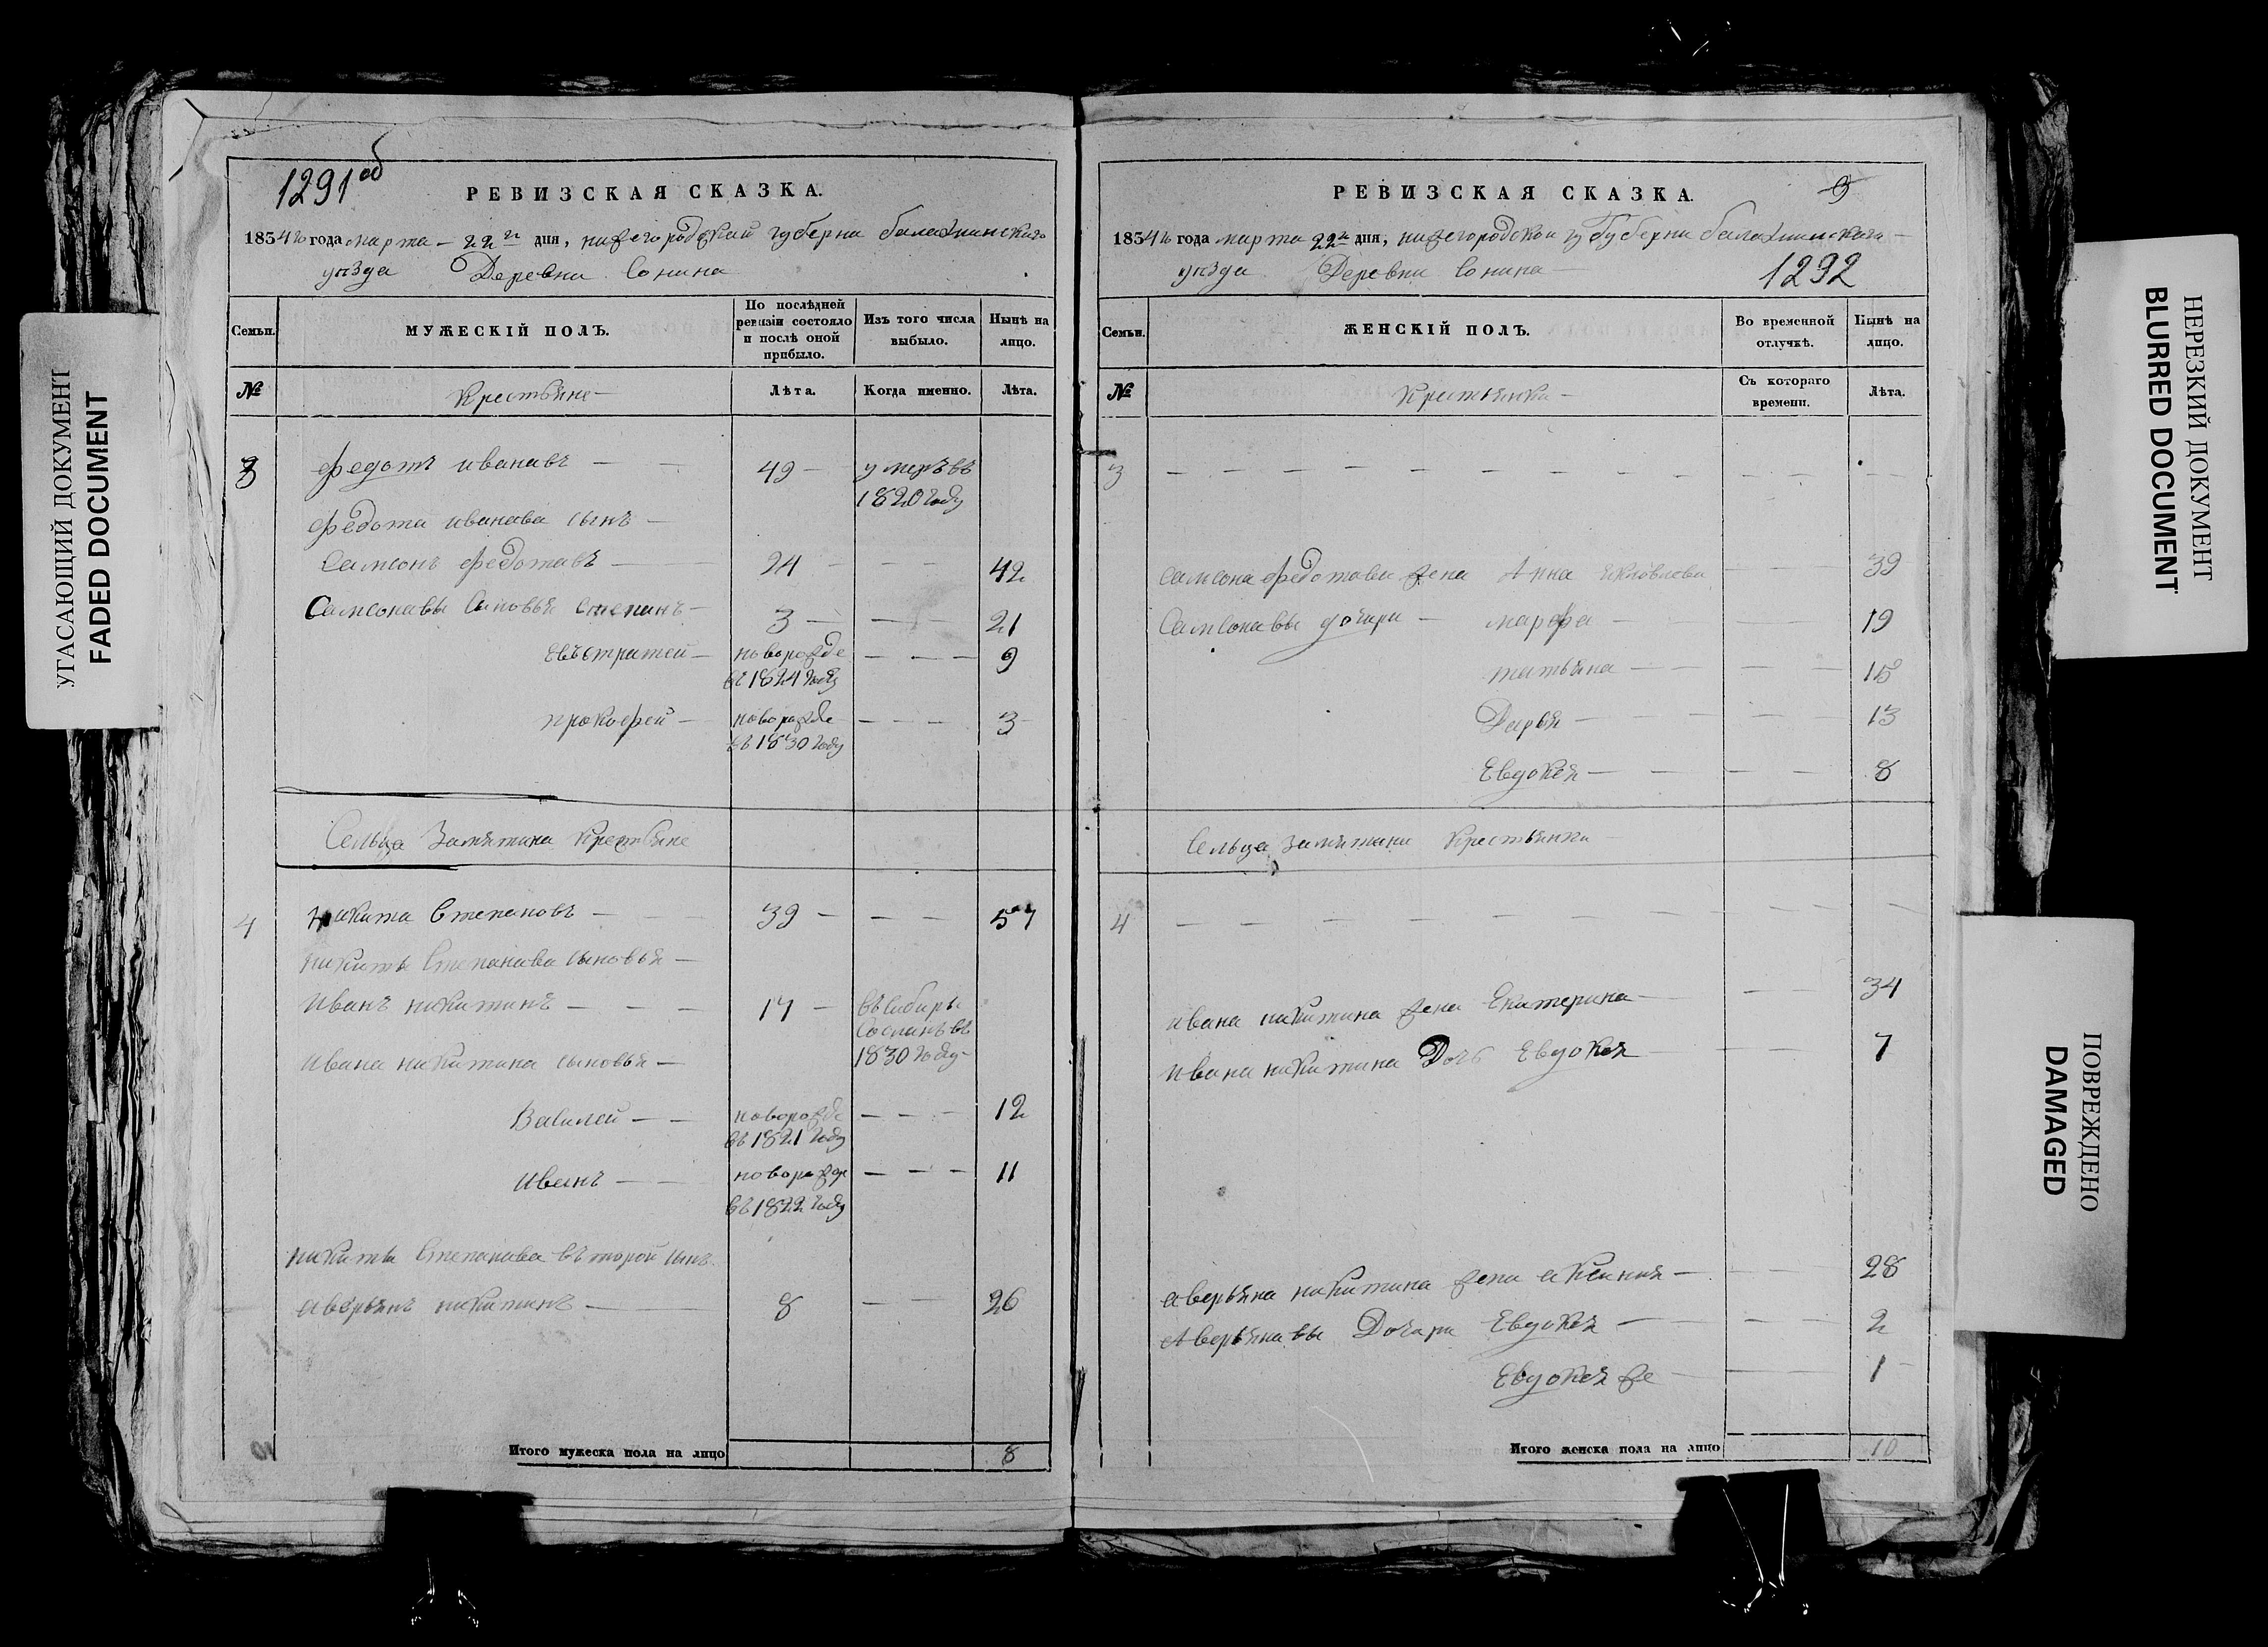 1291 об
РЕВИЗСКАЯ СКАЗКА.
1834 го года марта 22 го дня, нижегородской губерни балахнинскаго
уѣзда Деревни Сонина
Семьи. МУЖЕСКІЙ ПОЛЪ. По послѣдней ревизіи состояло и послѣ оной прибыло. Изъ того числа выбыло. Нынѣ на лицо.
№ Крестьяне Лѣта. Когда именно. Лѣта.
3 Федотъ ивановъ — 49 — умеръ въ
1820 году
Федота иванава сынъ —
Самсонъ федотавъ — 24 — — — 42
Самсонавы сыновья Степанъ — 3 — — — 21
евъстратей — новорожде — — — 9
въ 1824 году
прокофей — новорожде — — — 3
въ 1830 году
Сельца Замятина Крестьяне
4 Никита Степановъ — 39 — — — 57
никиты Степанава сыновья —
иванъ никитинъ — — — 17 — въ сибирь
Сосланъ въ
ивана никитина сыновья — 1830 году —
Василей — — новорожде — — — 12
въ 1821 году
иванъ — — новорожде — — — 11
въ 1822 году
никиты Степанава въторой сынъ
аверьянъ никитинъ — 8 — — 26
Итого мужеска пола на лицо 8
РЕВИЗСКАЯ СКАЗКА.
1834 го года марта 22 го дня, нижегородской губерни балахнинскаго
уѣзда Деревни Сонина 1292
Семьи. ЖЕНСКІЙ ПОЛЪ. Во временной отлучкѣ. Нынѣ на лицо.
№ Крестьянки Съ котораго времени. Лѣта.
3 — — — — — — — — — —
Самсона федотава жена Анна Яковлева — — — 39
Самсонавы дочири — марфа — — — 19
татьяна — — — 15
Дарья — — — 13
Евдокея — — — 8
Сельца замятина Крестьянки
4 — — — — — — — — — —
ивана никитина жена Екатерина — — — 34
ивана никитина Дочь Евдокея — — 7
аверьяна никитина жена аксиния — — — 28
Аверьянавы Дочари Евдокея — — — 2
Евдокея же — — 1
Итого женска пола на лицо 10
УГАСАЮЩИЙ ДОКУМЕНТ
FADED DOCUMENT
НЕРЕЗКИЙ ДОКУМЕНТ
BLURRED DOCUMENT
ПОВРЕЖДЕНО
DAMAGED